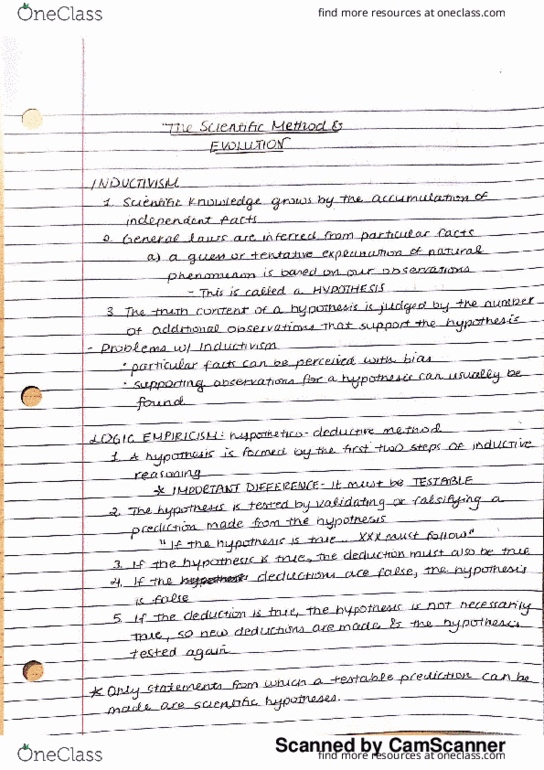 OneClass
find more resources at oneclass.com
The Scientific Method &
EVOLUTION
INDUCTIVISM
1. Scientific knowledge grows by the accumulation of
independent facts
2. General laws are inferred from particular facts
a) a guess or tentative explanation of natural
phenomenon is based on our observations
- This is called a HYPOTHESIS
3. The truth content of a hypothesis is judged by the number
of additional observations that support the hypothesis
- Problems w/ Inductivism
• particular facts can be perceived with bias
• supporting observations for a hypothesis can usually be
found
LOGIC EMPIRICISM: hypothetico-deductive method
1. A hypothesis is formed by the first two steps of inductive
reasoning
* IMPORTANT DIFFERENCE - it must be TESTABLE
2. The hypothesis is tested by validating or falsifying a
prediction made from the hypothesis
"If the hypothesis is true... XXX must follow"
3. If the hypothesis is true, the deduction must also be true
4. If the deductions are false, the hypothesis
is false
5. If the deduction is true, the hypothesis is not necessarily
true, so new deductions are made & the hypothesis
tested again
* Only statements from which a testable prediction can be
made are scientific hypotheses.
Scanned by CamScanner
OneClass
find more resources at oneclass.com